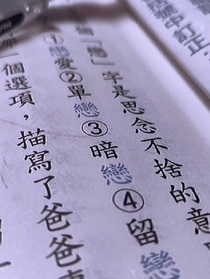 錯中訂正
「戀」字是思念不捨的意
①戀愛②單戀③暗戀④留戀
一個選項，描寫了爸爸